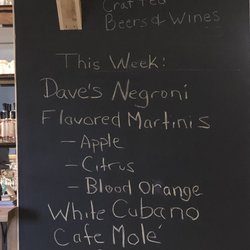 Crafted
Beers & Wines
This Week:
Dave's Negroni
Flavored Martinis
- Apple
- Citrus
- Blood Orange
White Cubano
Cafe Molé